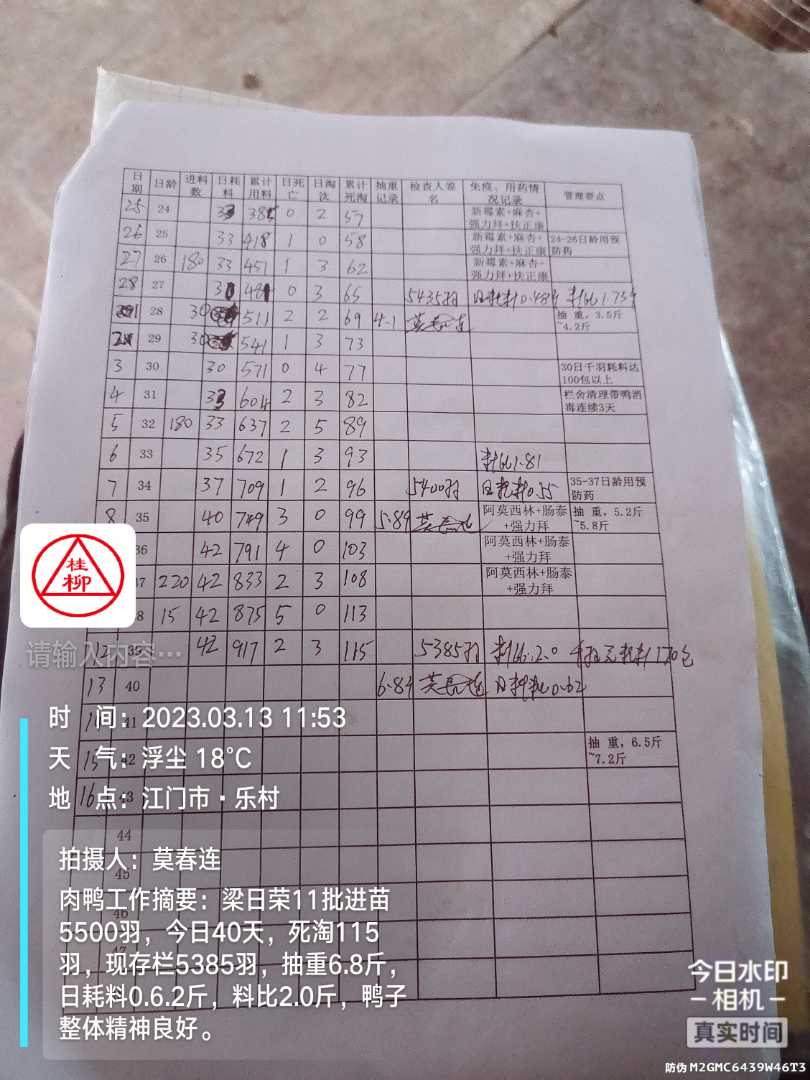 日期 日龄 进料数 日耗料 累计用料 日死亡 日淘汰 累计死淘 抽重记录 检查人签名 免疫、用药情况记录 管理要点
25 24 33 385 0 2 57 新霉素+麻杏+强力拜+扶正康
26 25 33 418 1 0 58 新霉素+麻杏+强力拜+扶正康 24-26日龄用预防药
27 26 180 33 451 1 3 62 新霉素+麻杏+强力拜+扶正康
28 27 30 481 0 3 65 5435羽 日耗料0.48 料比1.73
28 30 511 2 2 69 4.1 莫春连 抽重,3.5斤~4.2斤
29 30 541 1 3 73
3 30 30 571 0 4 77 30日千羽耗料达100包以上
4 31 33 604 2 3 82 栏舍清理带鸭消毒连续3天
5 32 180 33 637 2 5 89
6 33 35 672 1 3 93 料比1.81
7 34 37 709 1 2 96 5400羽 日耗料0.55 35-37日龄用预防药
8 35 40 749 3 0 99 5.89 莫春连 阿莫西林+肠泰+强力拜 抽重,5.2斤~5.8斤
36 42 791 4 0 103 阿莫西林+肠泰+强力拜
37 220 42 833 2 3 108 阿莫西林+肠泰+强力拜
38 15 42 875 5 0 113
12 39 42 917 2 3 115 5385羽 料比2.0
13 40 6.84 莫春连 日耗料0.62
41
15 42 抽重,6.5斤~7.2斤
16 43
44
45
46
47
桂柳
请输入内容…
时 间:2023.03.13 11:53
天 气:浮尘 18℃
地 点:江门市·乐村
拍摄人:莫春连
肉鸭工作摘要:梁日荣11批进苗
5500羽,今日40天,死淘115
羽,现存栏5385羽,抽重6.8斤,
日耗料0.6.2斤,料比2.0斤,鸭子
整体精神良好。
今日水印
-相机-
真实时间
防伪 M2GMC6439W46T3